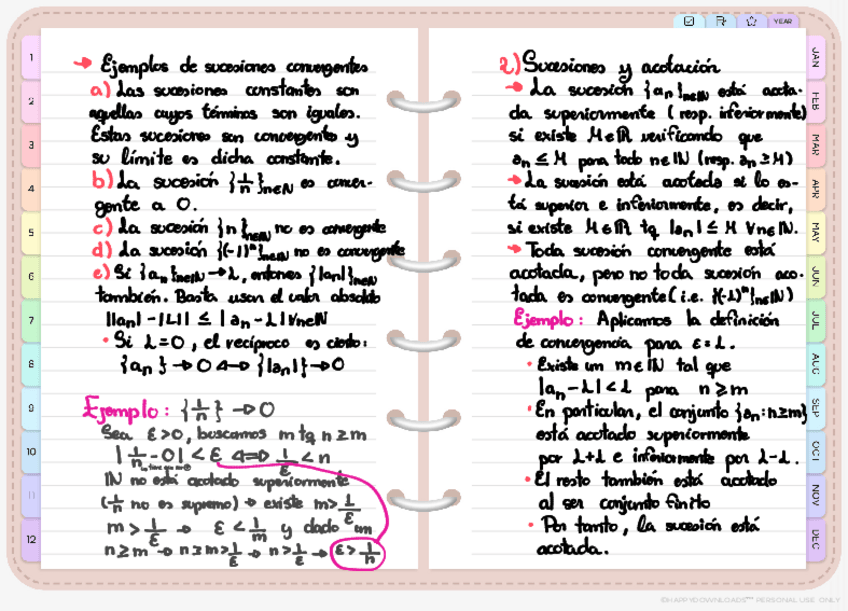 YEAR
1
2
3
4
5
6
7
8
9
10
11
12
→ Ejemplos de sucesiones convergentes
a) Las sucesiones constantes son
aquellas cuyos términos son iguales.
Estas sucesiones son convergentes y
su límite es dicha constante.
b) La sucesión {1/n}n∈ℕ es conver-
gente a 0.
c) La sucesión {n}n∈ℕ no es convergente
d) La sucesión {(-1)ⁿ}n∈ℕ no es convergente
e) Si {an}n∈ℕ → L, entonces {|an|}n∈ℕ
también. Basta usar el valor absoluto
||an| - |L|| ≤ |an - L| ∀n∈ℕ
• Si L=0, el recíproco es cierto:
{an} → 0 ⟺ {|an|} → 0
Ejemplo: {1/n} → 0
Sea ε>0, buscamos m tq n≥m
|1/n - 0| < ε ⟺ 1/ε < n
ℕ no está acotado superiormente
(1/n no es supremo) → existe m > 1/ε
m > 1/ε → ε < 1/m y dado un
n≥m → n≥m>1/ε → n>1/ε → ε>1/n
2) Sucesiones y acotación
→ La sucesión {an}n∈ℕ está acota-
da superiormente (resp. inferiormente)
si existe M∈ℝ verificando que
an ≤ M para todo n∈ℕ (resp. an ≥ M)
→ La sucesión está acotada si lo es-
tá superior e inferiormente, es decir,
si existe M∈ℝ tq |an| ≤ M ∀n∈ℕ.
→ Toda sucesión convergente está
acotada, pero no toda sucesión aco-
tada es convergente (i.e. {(-1)ⁿ}n∈ℕ)
Ejemplo: Aplicamos la definición
de convergencia para ε=1.
• Existe un m∈ℕ tal que
|an - L| < 1 para n≥m
• En particular, el conjunto {an : n≥m}
está acotado superiormente
por L+1 e inferiormente por L-1.
• El resto también está acotado
al ser conjunto finito
• Por tanto, la sucesión está
acotada.
JAN
FEB
MAR
APR
MAY
JUN
JUL
AUG
SEP
OCT
NOV
DEC
©HAPPYDOWNLOADS PERSONAL USE ONLY